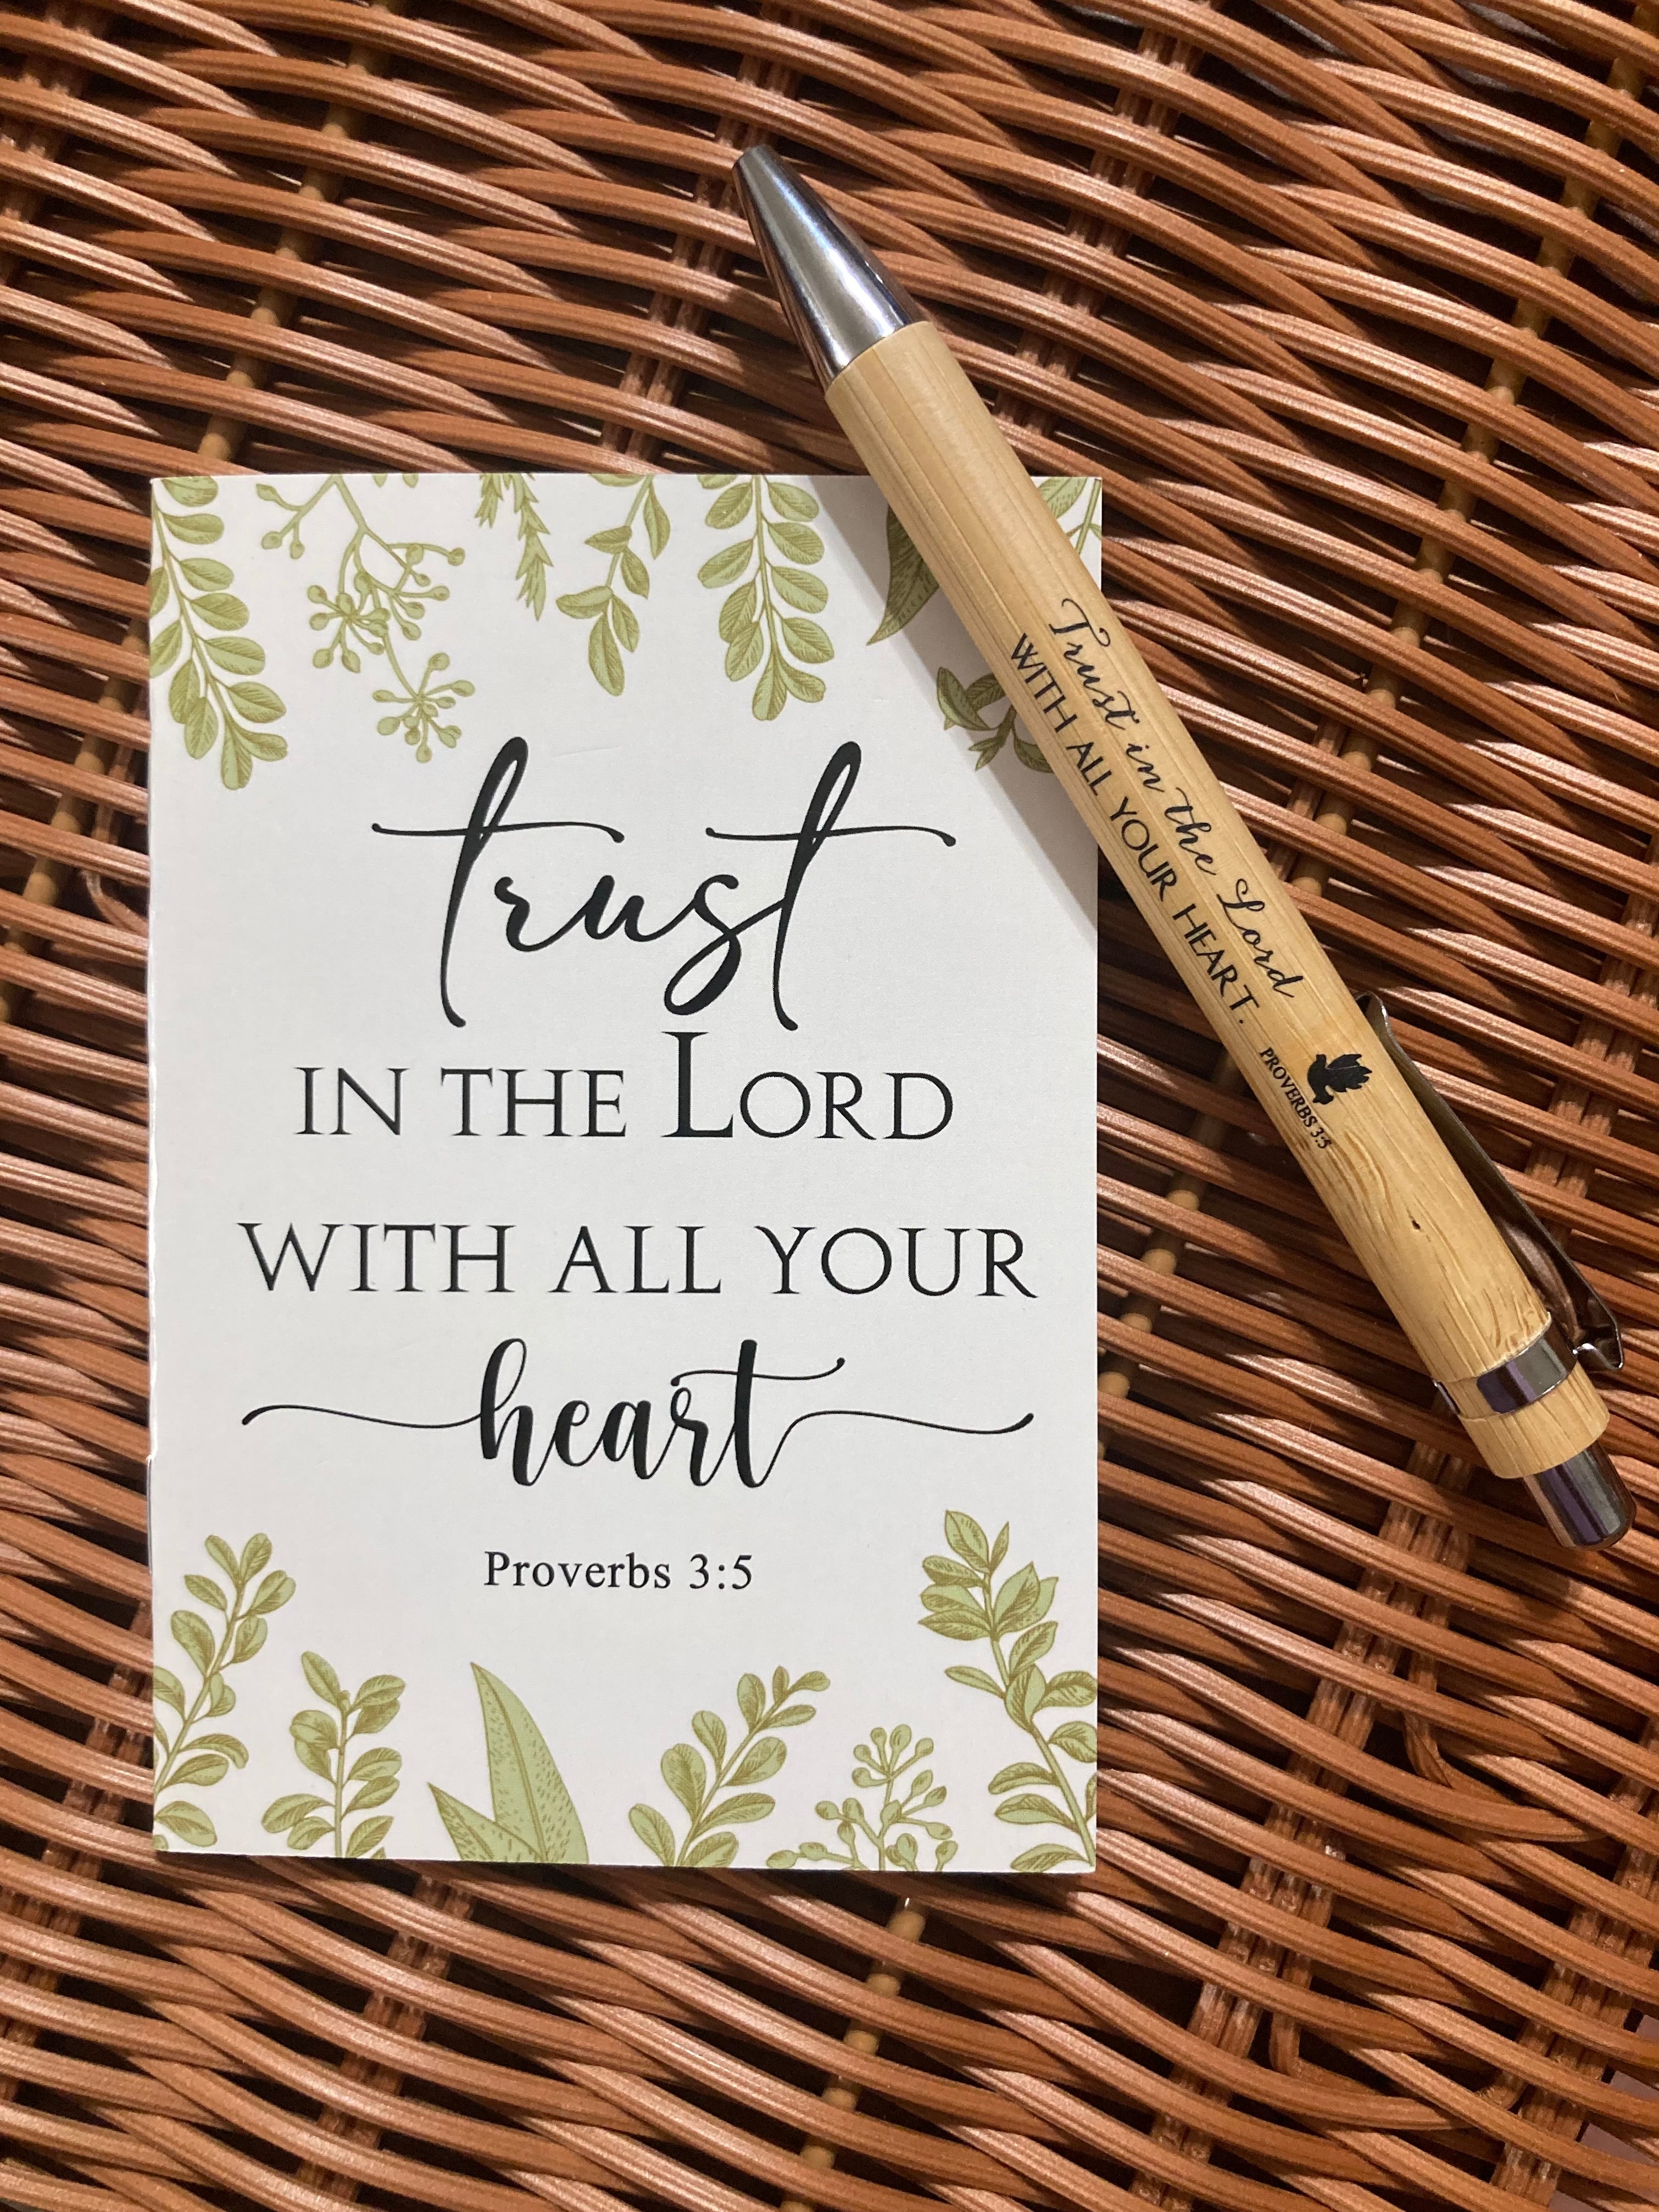 trust
IN THE LORD
WITH ALL YOUR
heart
Proverbs 3:5
Trust in the Lord
WITH ALL YOUR HEART.
PROVERBS 3:5